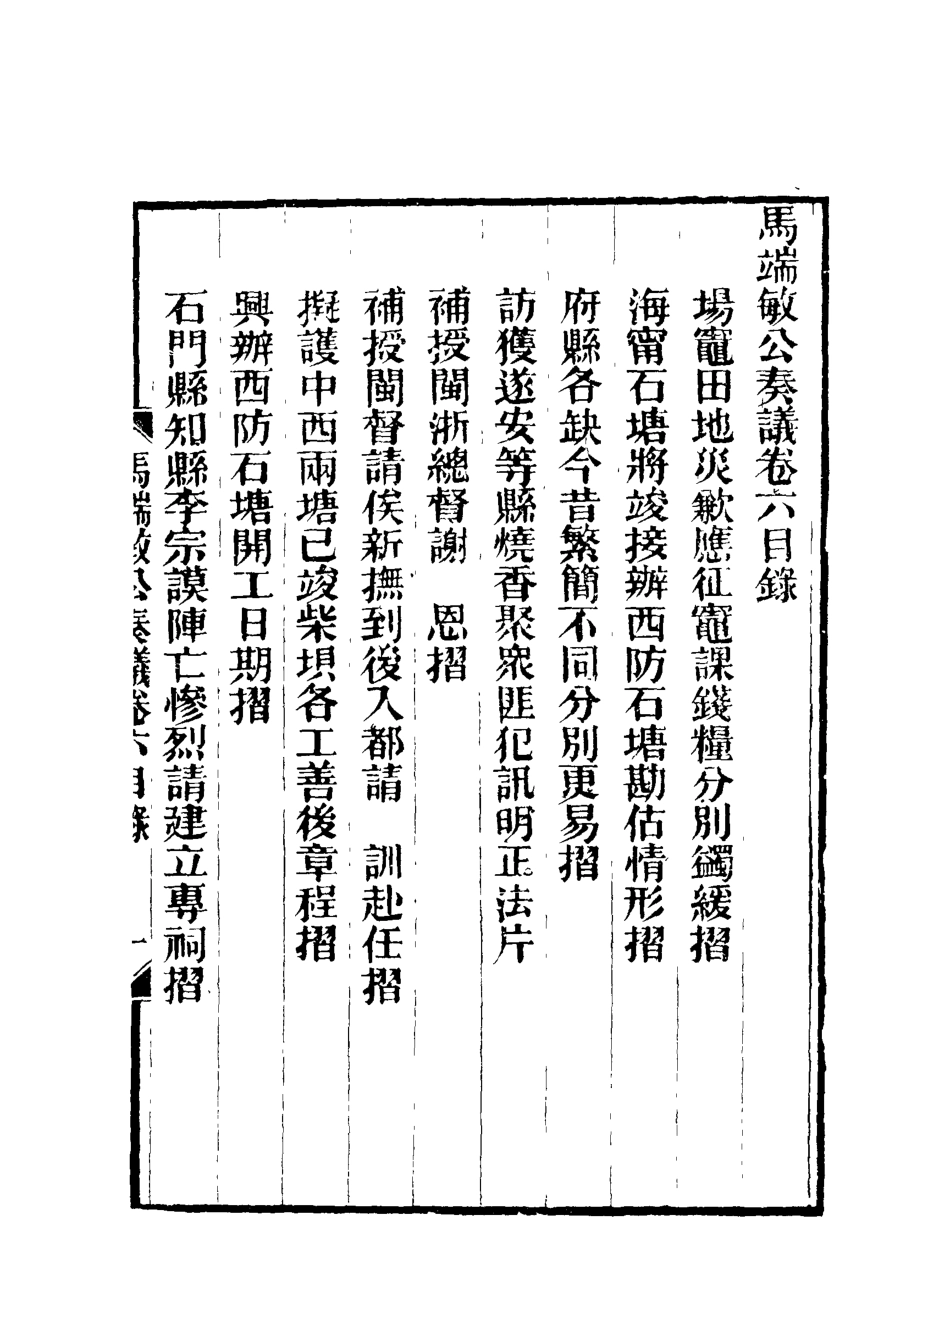 馬端敏公奏議卷六目錄
場竈田地災歉應征竈課錢糧分別蠲緩摺
海甯石塘將竣接辦西防石塘勘估情形摺
府縣各缺今昔繁簡不同分別更易摺
訪獲遂安等縣燒香聚眾匪犯訊明正法片
補授閩浙總督謝　恩摺
補授閩督請俟新撫到後入都請　訓赴任摺
擬護中西兩塘已竣柴埧各工善後章程摺
興辦西防石塘開工日期摺
石門縣知縣李宗謨陣亡慘烈請建立專祠摺
馬端敏公奏議卷六目錄　一